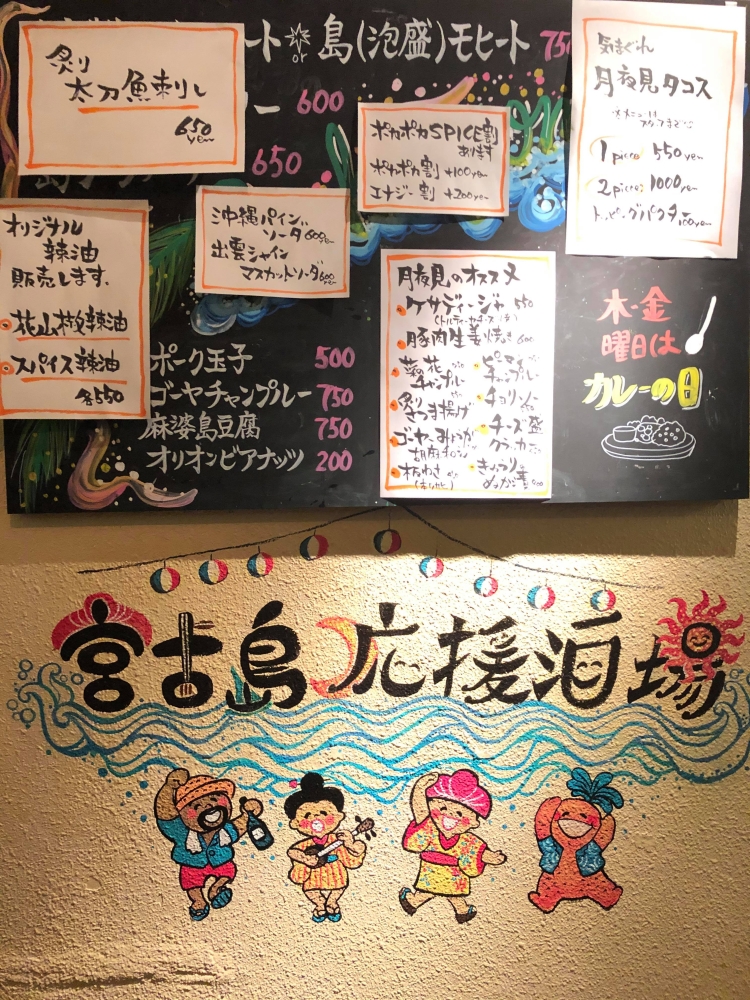 ート or 島(泡盛)モヒート 750
炙り
太刀魚刺し
650
yen
ー 600
650
ポカポカSPICE割
あります
ポカポカ割 +100yen
エナジー割 +200yen
気まぐれ
月夜見タコス
1 piece 550yen
2 piece 1000yen
トッピングパクチー100yen
オリジナル
辣油
販売します。
花山椒辣油
スパイス辣油
各550
沖縄パイン
ソーダ600yen
出雲シャイン
マスカットソーダ600yen
月夜見のオススメ
ケサディージャ 550
豚肉生姜焼き 600
菜の花
チャンプルー
炙り
さつま揚げ
ゴーヤーみょうが
胡麻
板わさ
ピーマン
チャンプルー
チョリソー
チーズ盛
クラッカー
きゅうり
ポーク玉子 500
ゴーヤチャンプルー 750
麻婆島豆腐 750
オリオンビアナッツ 200
木・金
曜日は
カレーの日
宮古島応援酒場